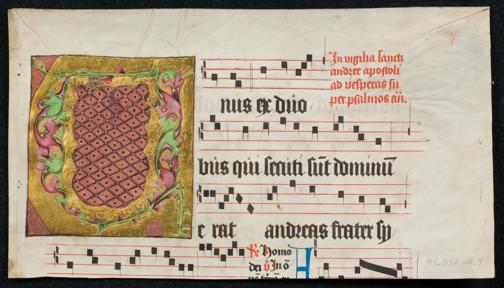 In vigilia sancti
andree apostoli
ad vesperas su
per psalmos añ.
4
nus ex duo
bus qui secuti sūt dominū
e rat andreas frater sy
℟ Homo
dei ℣ In o